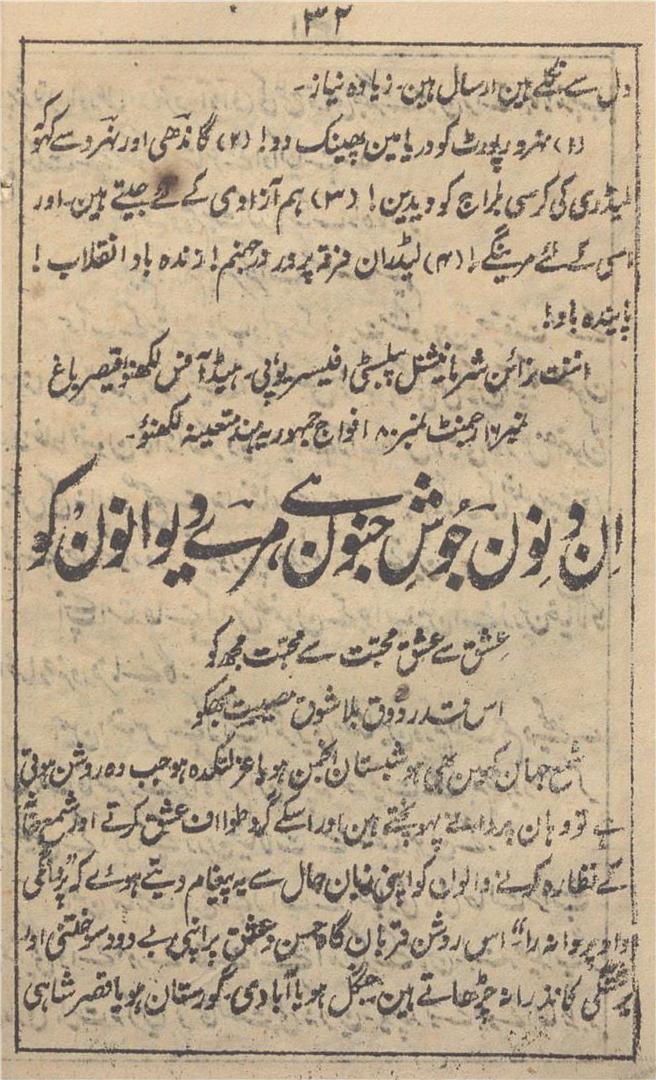 ۳۲
دل سے نکلے ہین ارسال ہین۔ زیادہ نیاز۔
(۱) نہرو رپورٹ کو دریا مین پھینک دو! (۲) گاندھی اور نہرو سے کہو کہ
لیڈری کی کرسی طراج کو دیدین! (۳) ہم آزادی کے لئے جیتے ہین۔ اور
اسی کے لئے مرینگے! (۴) لیڈران فرقہ پرور در جہنم! زندہ باد انقلاب!
پایندہ باد!
اننت نرائن شرما نیشنل پبلسٹی افیسر یوپی۔ ہیڈ آفس لکھنؤ قیصر باغ
نمبر ۱۶ رجمنٹ نمبر ۸ افواج جمہوریہ ہند متعینہ لکھنؤ۔
اِن دِنون جوُشِ جنون ہے مرے دیوانون کو
عشق سے عشق محبت سے محبت مجھ کو
اس قدر ذوق بلا شوق مصیبت مجھکو
شمع جہان کہین بھی ہو شبستان انجمن ہو یا عزلتکدہ ہو جب وہ روشن ہوتی
ہے تو وہان پروانے پہونچتے ہین اور اسکے گرد طواف عشق کرتے اور شمع
کے نظارہ کرنے والون کو اپنی زبان حال سے یہ پیغام دیتے ہوئے کہ
داد پروانہ را" اس روشن قربان گاہ حسن و عشق پر اپنی بے دود سوختنی اور
کا نذرانہ چڑھاتے ہین۔ جنگل ہو یا آبادی۔ گورستان ہو یا قصر شاہی